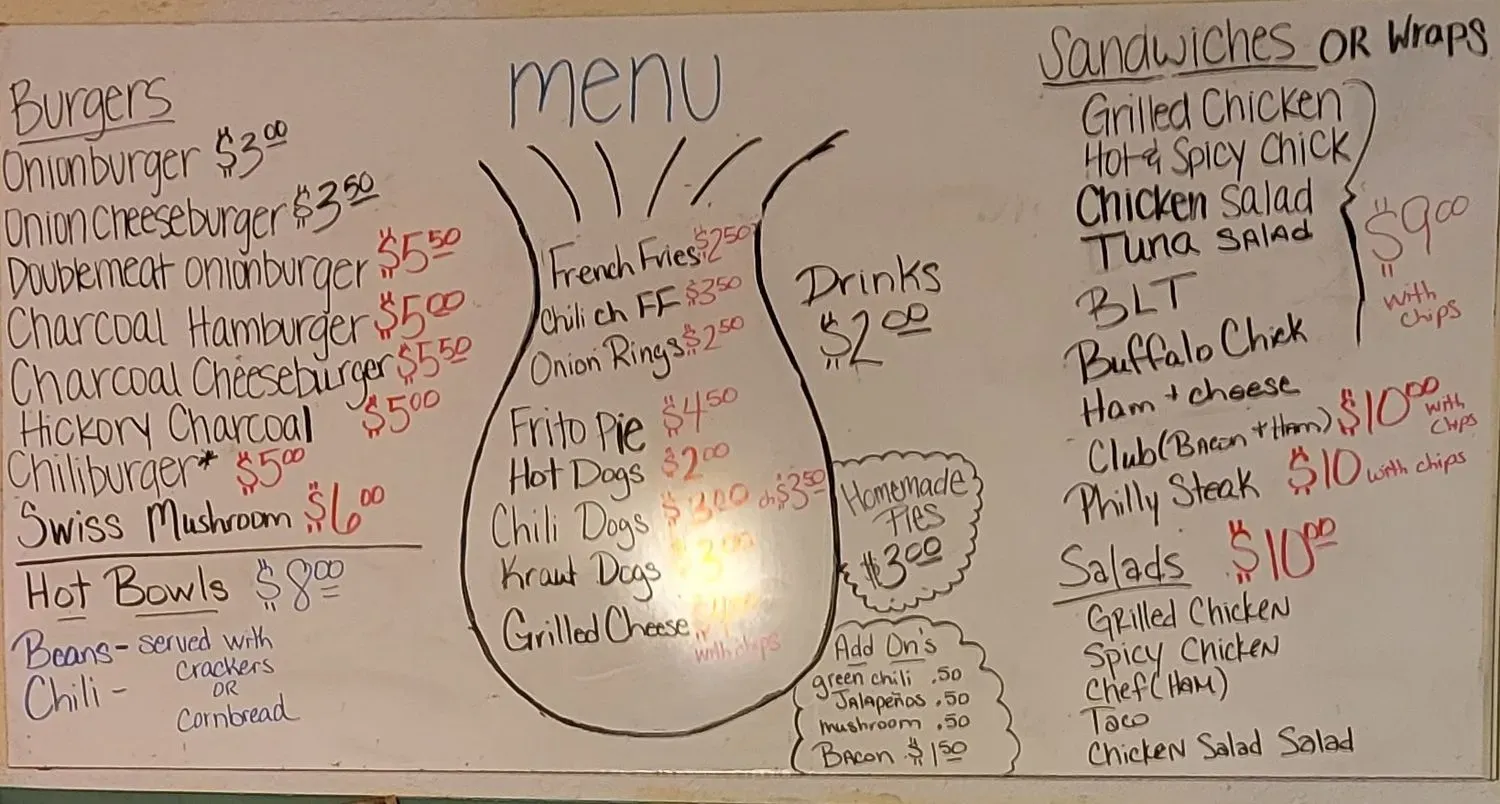 menu
Burgers
Onionburger $3.00
Onion Cheeseburger $3.50
Doublemeat onionburger $5.50
Charcoal Hamburger $5.00
Charcoal Cheeseburger $5.50
Hickory Charcoal $5.00
Chiliburger* $5.00
Swiss Mushroom $6.00
Hot Bowls $8.00
Beans - served with
crackers
OR
Cornbread
Chili -
French Fries $2.50
Chili ch FF $3.50
Onion Rings $2.50
Frito Pie $4.50
Hot Dogs $2.00
Chili Dogs $3.00 ch $3.50
Kraut Dogs
Grilled Cheese
with chips
Drinks
$2.00
Homemade
Pies
$3.00
Add On's
green chili .50
Jalapeños .50
mushroom .50
Bacon $1.50
Sandwiches OR Wraps
Grilled Chicken
Hot & Spicy Chick
Chicken Salad
Tuna SALAD
BLT
Buffalo Chick
$9.00
with
chips
Ham + cheese
Club (Bacon + Ham) $10.00 with
chips
Philly Steak $10 with chips
Salads $10.00
Grilled Chicken
Spicy Chicken
Chef (HAM)
Taco
Chicken Salad Salad